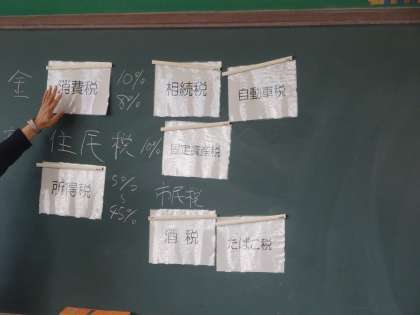 金 消費税 10% 相続税 自動車税
8%
住民税 10% 固定資産税
所得税 5% 市民税
〜
45% 酒税 たばこ税